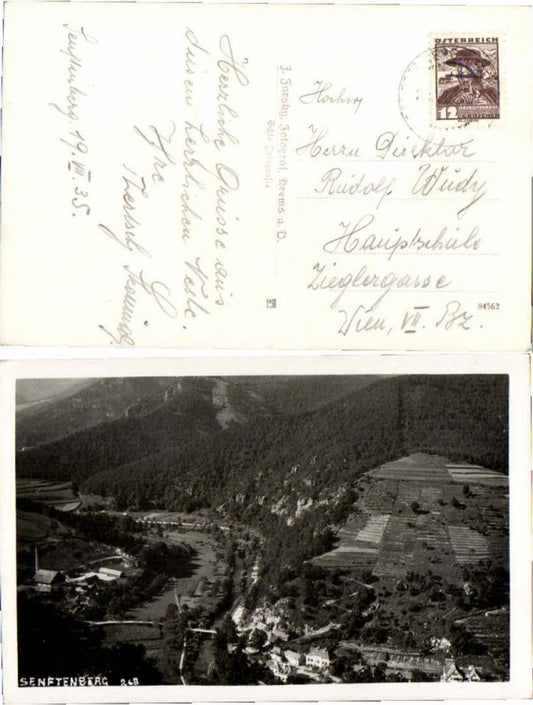 Senftenberg 19. VII 35.
Herrliche Grüsse aus
diesem herrlichen Neste.
Ihre
J. Farsky, Fotograf, Krems a. D.
Echte Fotografie
ÖSTERREICH
12
Hochw.
Herrn Direktor
Rudolf Wudy
Hauptschule
Zieglergasse
Wien, VII. Bz.
84562
SENFTENBERG 268